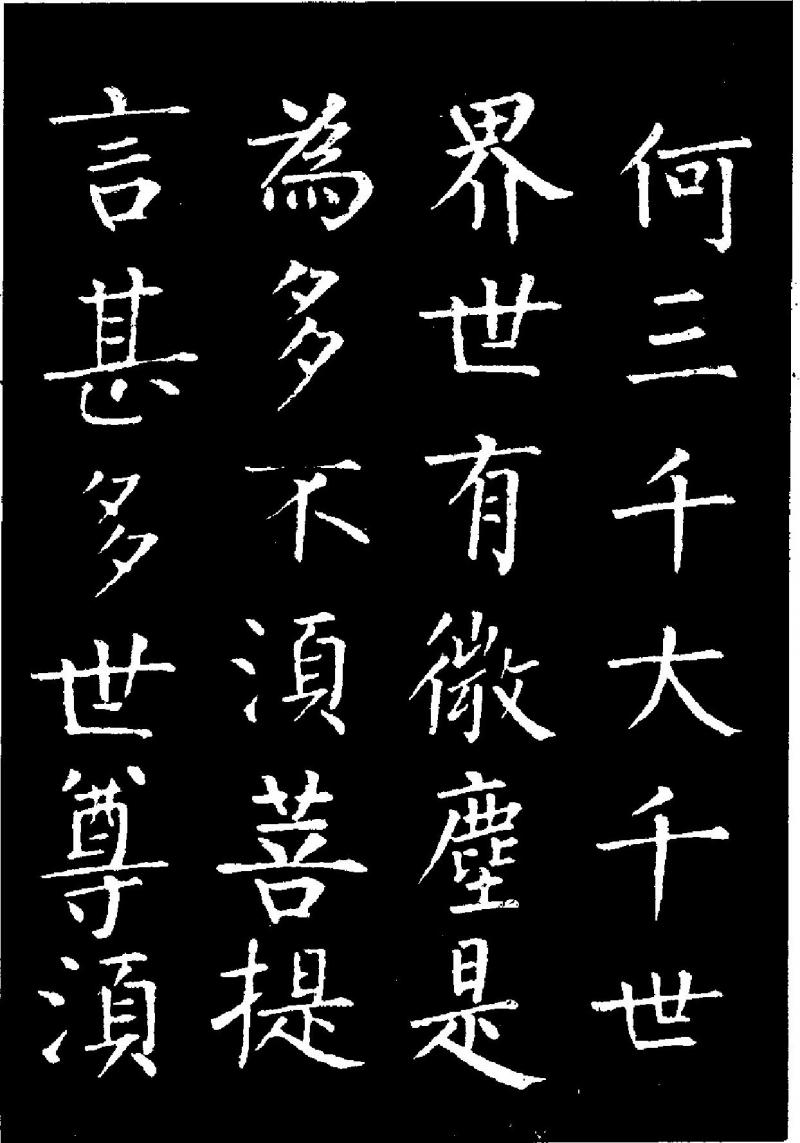 何三千大千世
界世有微塵是
為多不湏菩提
言甚多世尊湏